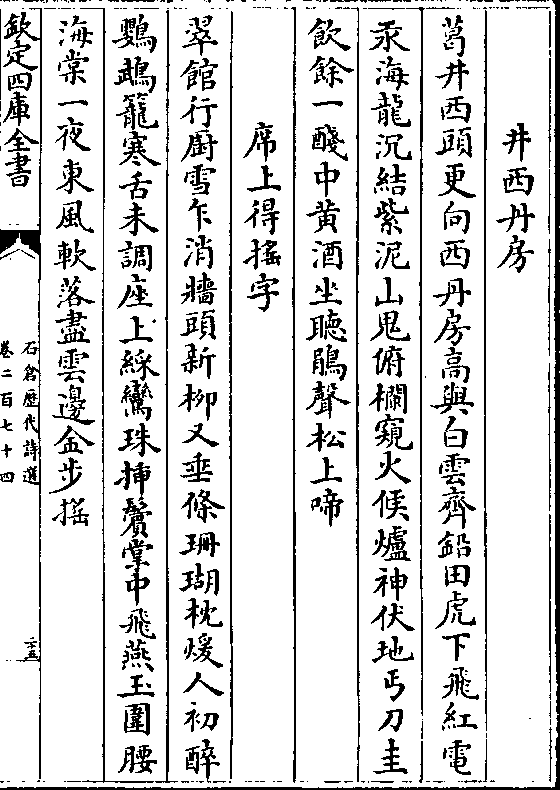 井西丹房
葛井西頭更向西丹房高與白雲齊鉛田虎下飛紅電
汞海龍沉結紫泥山鬼俯欄窺火候爐神伏地丐刀圭
飲餘一醆中黄酒坐聽鵑聲松上啼
席上得搖字
翠館行厨雪乍消牆頭新栁又垂條珊瑚枕煖人初醉
鸚鵡籠寒舌未調座上綵鸞珠揷鬢掌中飛燕玉圍腰
海棠一夜東風軟落盡雲邊金步揺
欽定四庫全書
石倉歴代詩選
卷二百七十四
二五